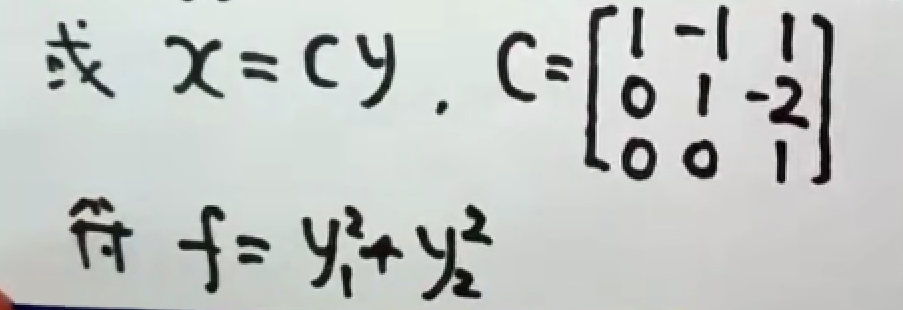 或 x = Cy . C = [1 -1 1; 0 1 -2; 0 0 1]
f = y₁² + y₂²